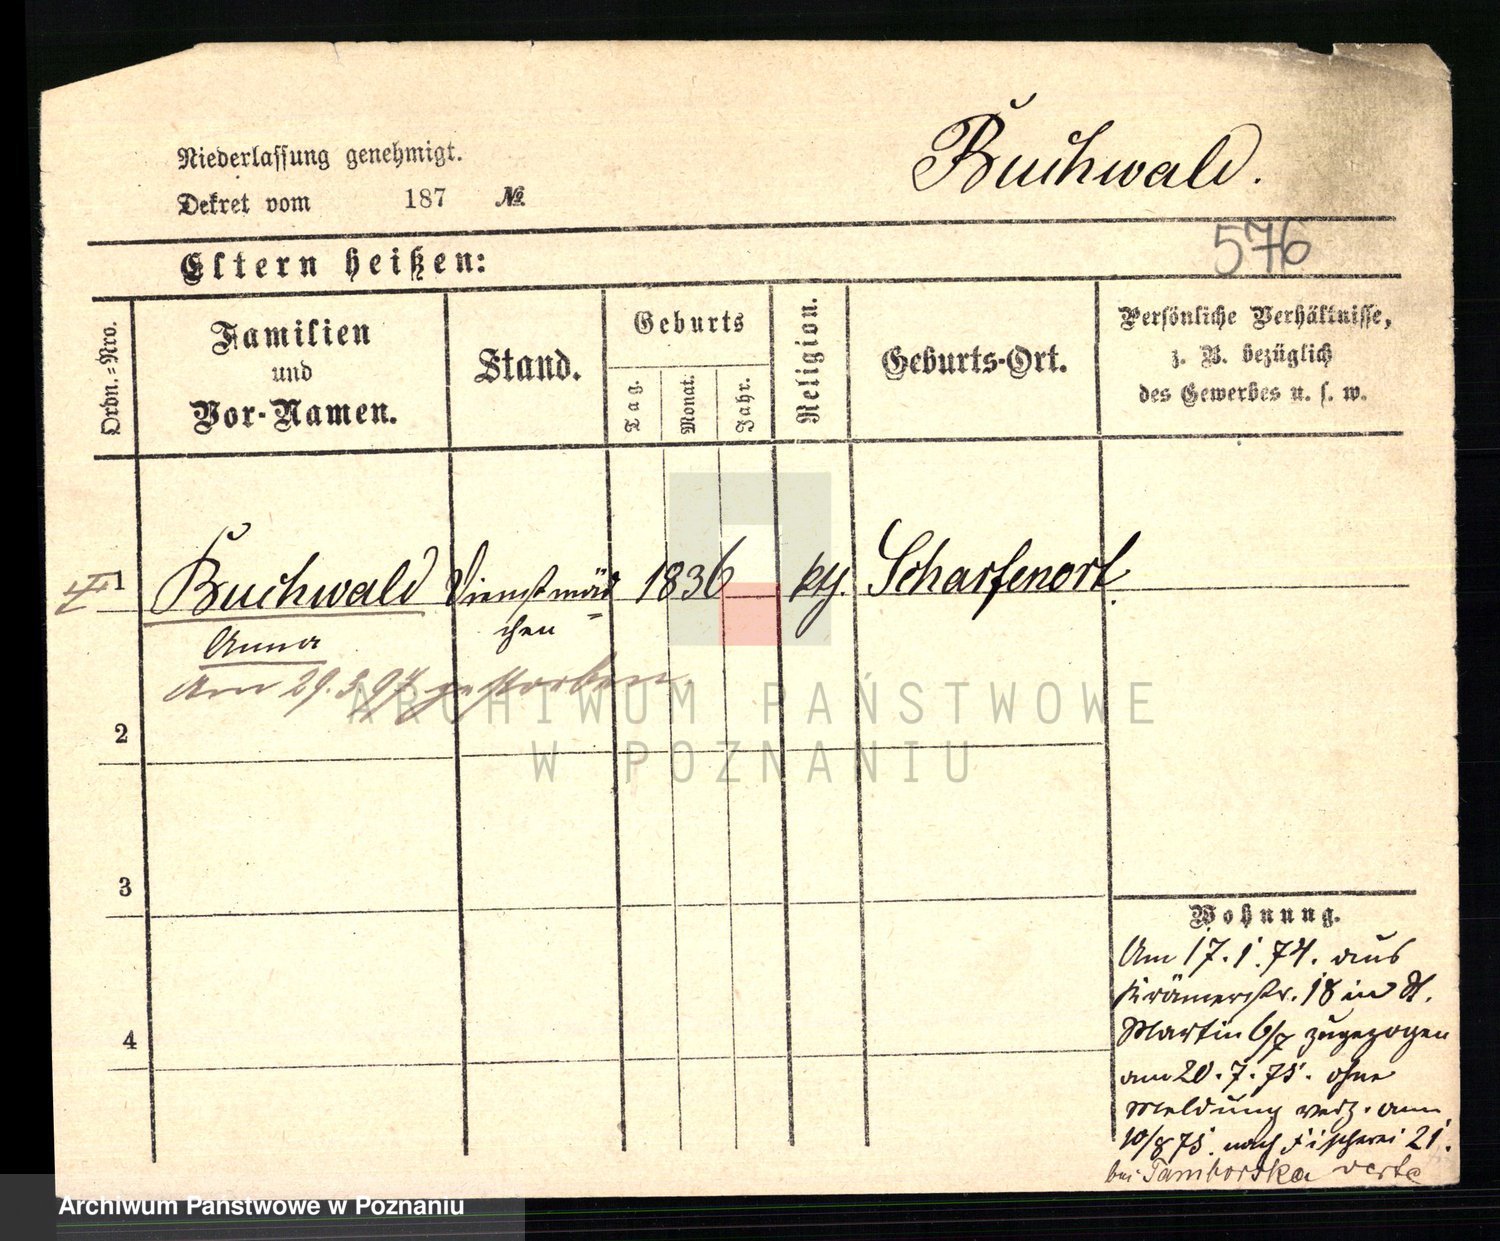 Niederlassung genehmigt.
Dekret vom 187 №
Buchwald.
576
Eltern heißen:
Ordn.-Nro.
Familien
und
Vor-Namen.
Stand.
Geburts
Tag.
Monat.
Jahr.
Religion.
Geburts-Ort.
Persönliche Verhältnisse,
z. B. bezüglich
des Gewerbes u. s. w.
1 Buchwald Dienstmäd= 1836 kth. Scharfenort.
Anna chen
Am 29.3.97 gestorben.
2
3
4
Wohnung.
Am 17.1.74. aus
Krämerstr. 18 in St.
Martin 6/7 zugezogen
am 20.7.75. ohne
Meldung verz. am
10/8 75. nach Fischerei 21.
bei Tamborska verte
ARCHIWUM PAŃSTWOWE
W POZNANIU
Archiwum Państwowe w Poznaniu